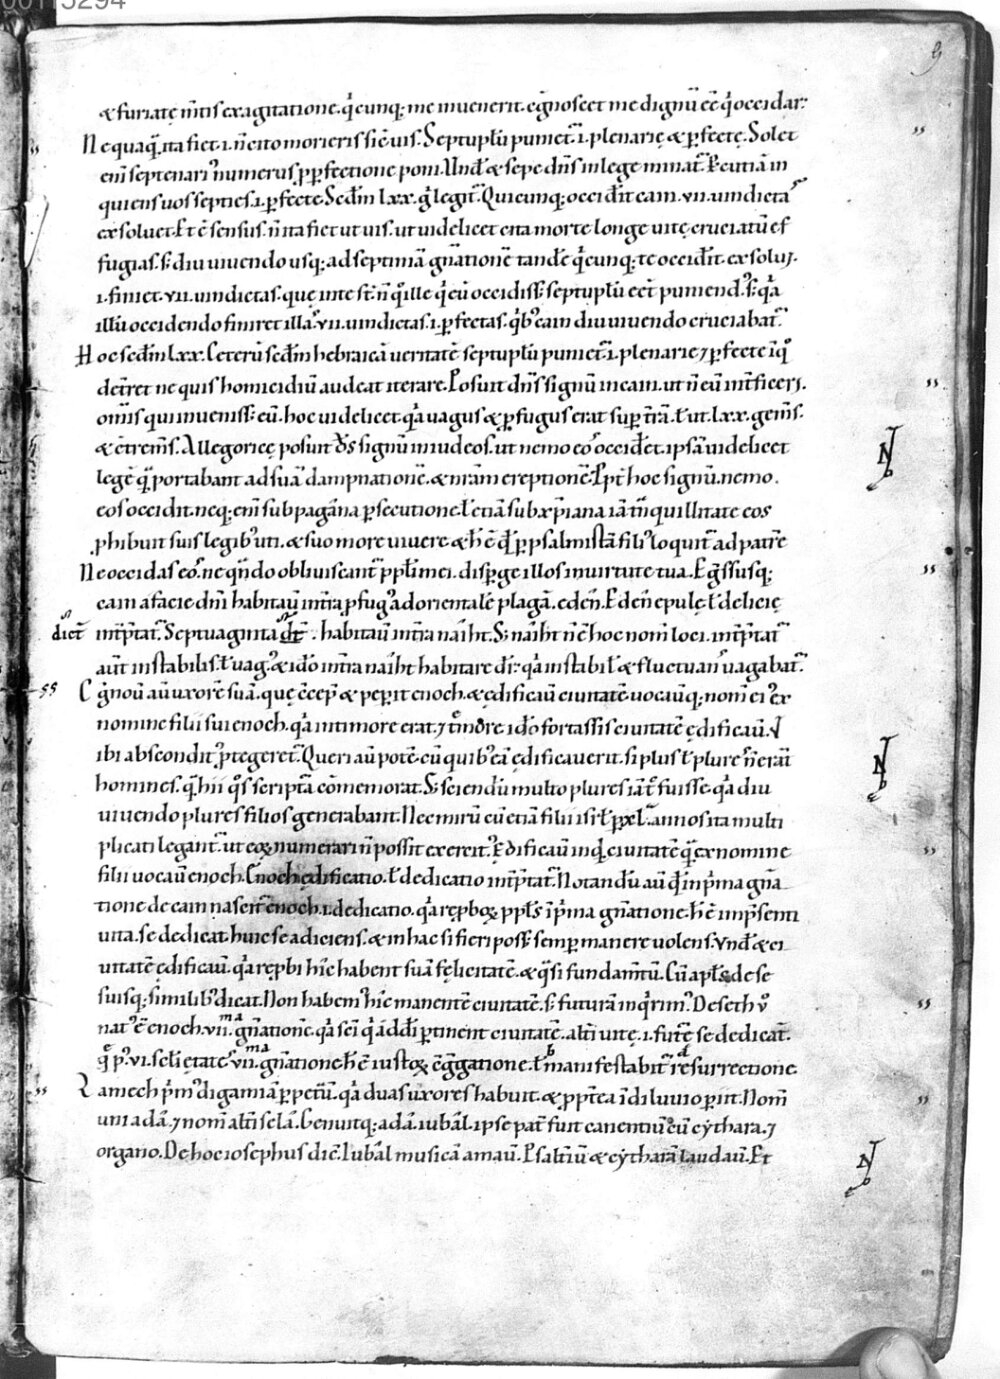 00115294
9
& furiatę m̄tis exagitatione. q̄cunq; me inuenerit. c̄gnoscet me dignū eē q̄ occidar:
Nequaq̄ ita fiet. i. n̄ cito morieris sic̄ uis. Septuplū puniet̄. i. plenarię & p̄fectę. Solet
eni septenari' numerus, p p̄fectione poni. Und' & sepe dn̄s in lege minat̄. P̄cutiā in
quiens uos septies. i. p̄fecte. Sed'm lxx. q̄ legit̄. Quicunq; occid'it cain. vii. uindictas
exsoluet. Et ē sensus. n̄ ita fiet ut uis. ut uidelicet cita morte longe uitę cruciatū ef
fugias. s; diu uiuendo usq; ad septimā gn̄ationē tandē q̄cunq; te occid'it. exsolu&.
i. finiet. vii. uindictas. quę in te st̄. n̄ q'̄ ille q̄ eū occidiss& septuplū eēt puniend'. s; q̄a
illū occidendo finiret illas vii. uindictas. i. p̄fectas. q̄b' cain diu uiuendo cruciabat̄.
Hoc sed'm lxx. Ceterū sed'm hebraicā ueritatē septuplū puniet̄. i. plenarie 7 p̄fecte
ne quis homicidiū audeat iterare. Posuit dn̄s signū in cain. ut n̄ eū int̄ficer&.
om̄is qui inueniss& eū. hoc uidelicet q̄a uagus & p̄fugus erat sup t̄rā. ł ut. lxx. gem̄s.
& t̄rem̄s. Allegoricę posuit d's signū in iudeos. ut nemo eos occid'et. ipsā uidelicet
legē q̄ portabant ad suā dampnationē. & nr̄am ereptionē. Ppt̄ hoc signū. nemo.
eos occidit. neq; eni sub pagāna p̄secutione. ł etiā sub xp̄iana iā in tranquillitate eos
phibuit suis legib' uti. & suo more uiuere & h' ē q' p psalmistā fili' loquit̄ ad patrē
Ne occidas eos. ne q̄ndo obliuiscant̄ pp̄li mei. disp̄ge illos in uirtute tua. Eg̃ssusq;
cain a facie dn̄i habitau' in t̄ra p̄fug' ad orientalē plagā. edēn. Edēn epulę ł delicię
dict̄ int̄p̄tat̄. Septuaginta d't̄. habitau' in t̄ra naīht. S; naīht n̄ ē hoc nom̄ loci. int̄p̄tat̄
aūt instabilis. ł uag'. & ido in t̄ra naīht habitare d'r: q̄a instabił & fluctuans uagabat̄.
Cgnou' au' uxorē suā. quę c̄cep' & pep̄it enoch. & ędificau' ciuitatē uocau'q; nom̄ ei' ex
nomine filii sui enoch. q̄a in timore erat. 7 timore ido fortassis ciuitatē ędificau'.
ibi abscondit' p̄tegeret̄. Queri au' potē. cū quib' eā ędificauerit. si plus ł plures n̄ erāt
homines. q̄ hii q's scriptā cōmemorat. S; sciend'ū multo plures iā t̄c fuisse. q̄a diu
uiuendo plures filios generabant. Nec mirū cū etiā filii isrł p xl. annos ita multi
plicati legant̄. ut eoꝝ numerari n̄ possit exercit'. Ędificau' inq̄ ciuitatē q̄ ex nomine
filii uocau' enoch. Enoch ędificatio. ł dedicatio int̄p̄tat̄. Notand'ū au' q' in p̄ma gn̄a
tione de cain nascit̄ enoch. i. dedicatio. q̄a rep̄boꝝ pp̄ls ī p̄ma gn̄atione. h' ē in p̄senti
uita. se dedicat. huic se adiciens. & in hac si fieri poss& semp manere uolens. Vnd' & ci
uitatē ędificau'. q̄a rep̄bi hic habent suā felicitatē. & q̄si fundam̄tū. Cū apłs de se
suisq; similib' dicat. Non habem' hic manentē ciuitatē. s; futurā inq̄rim'. De seth u'
nat' ē enoch. vii.ma gn̄ationē. q̄a sci q̄ ad d'i p̄tinent ciuitatē. alt̄i uitę. i. futę se dedicat̄.
q̄ p' vi. sełi ętates vii.ma gn̄atione. h' ē iustoꝝ c̄g̃gatione. ł manifestabit̄ resurrectione
Lamech p̄m' digamiā p̄petū. q̄a duas uxores habuit. & ppt̄ea ī diluuio p̄iit. Nom̄
uni adā. 7 nom̄ alt̄i selā. Genuitq; adā. iubāl. ipse pat̄ fuit canentiū ī cythara. 7
organo. De hoc iosephus dic̄. Iubāl musicā amau'. Psaltiū & cytharā laudau'. Et